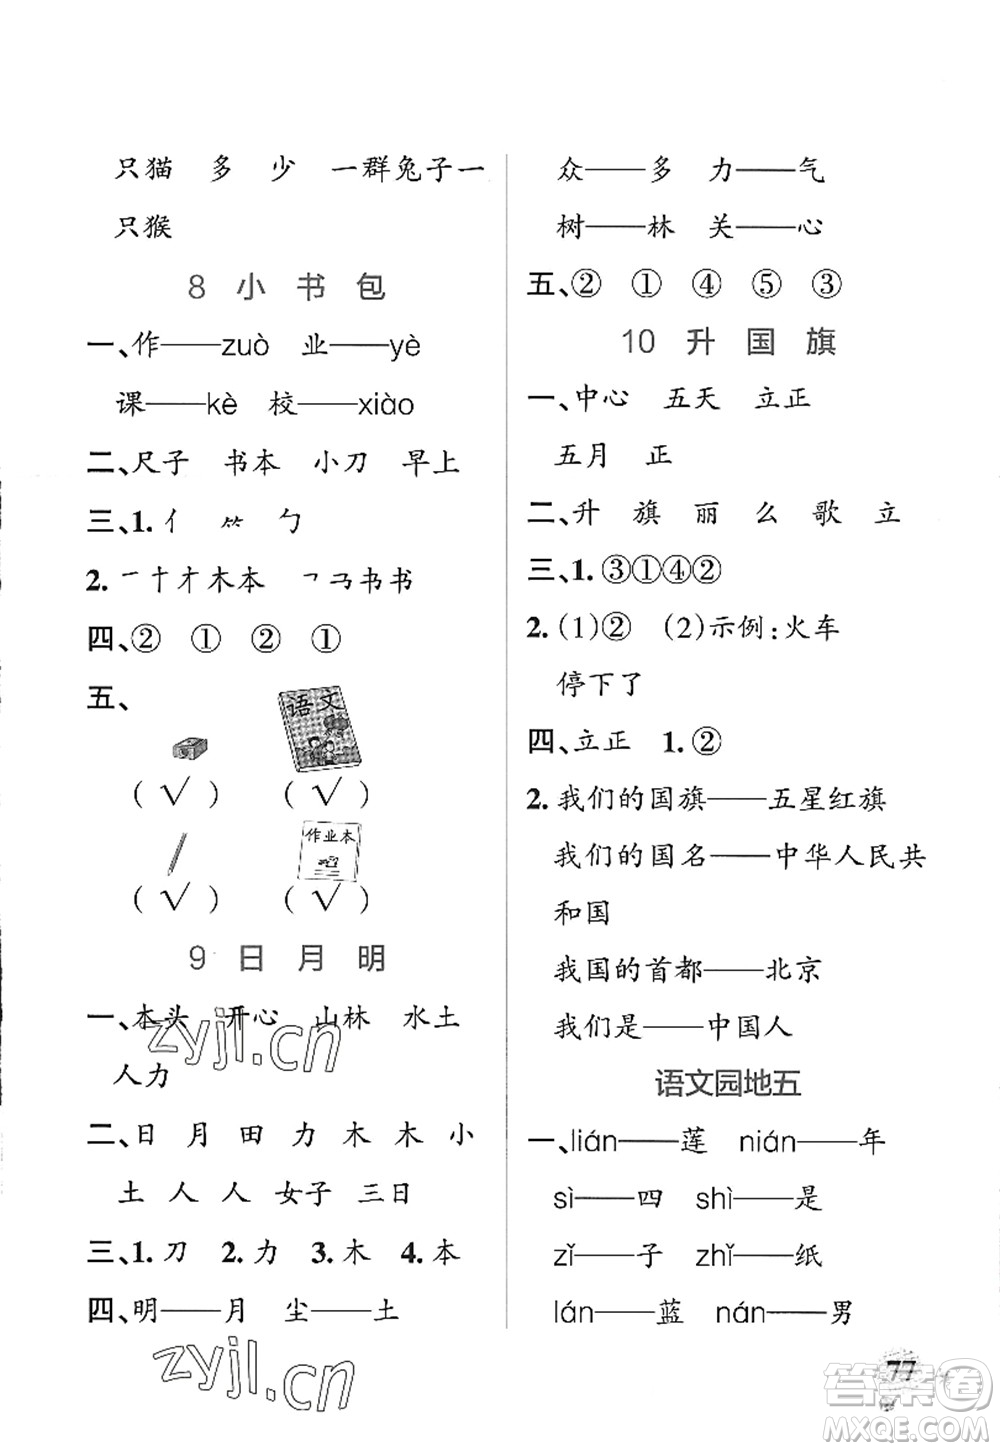 只猫 多 少 一群兔子一
只猴
8 小 书 包
一、作——zuò 业——yè
课——kè 校——xiào
二、尺子 书本 小刀 早上
三、1. 亻 ⺮ 勹
2. 一十才木本 ㇕马书书
四、② ① ② ①
五、
语文
(√) (√)
作业本
(√) (√)
9 日 月 明
一、本头 开心 山林 水土
人力
二、日 月 田 力 木 木 小
土 人 人 女子 三日
三、1. 刀 2. 力 3. 木 4. 本
四、明——月 尘——土
众——多 力——气
树——林 关——心
五、② ① ④ ⑤ ③
10 升 国 旗
一、中心 五天 立正
五月 正
二、升 旗 丽 么 歌 立
三、1. ③①④②
2. (1)② (2)示例:火车
停下了
四、立正 1. ②
2. 我们的国旗——五星红旗
我们的国名——中华人民共
和国
我国的首都——北京
我们是——中国人
语文园地五
一、lián——莲 nián——年
sì——四 shì——是
zǐ——子 zhǐ——纸
lán——蓝 nán——男
77
zyjl.cn
zyjl.cn
答案圈
MXQE.COM